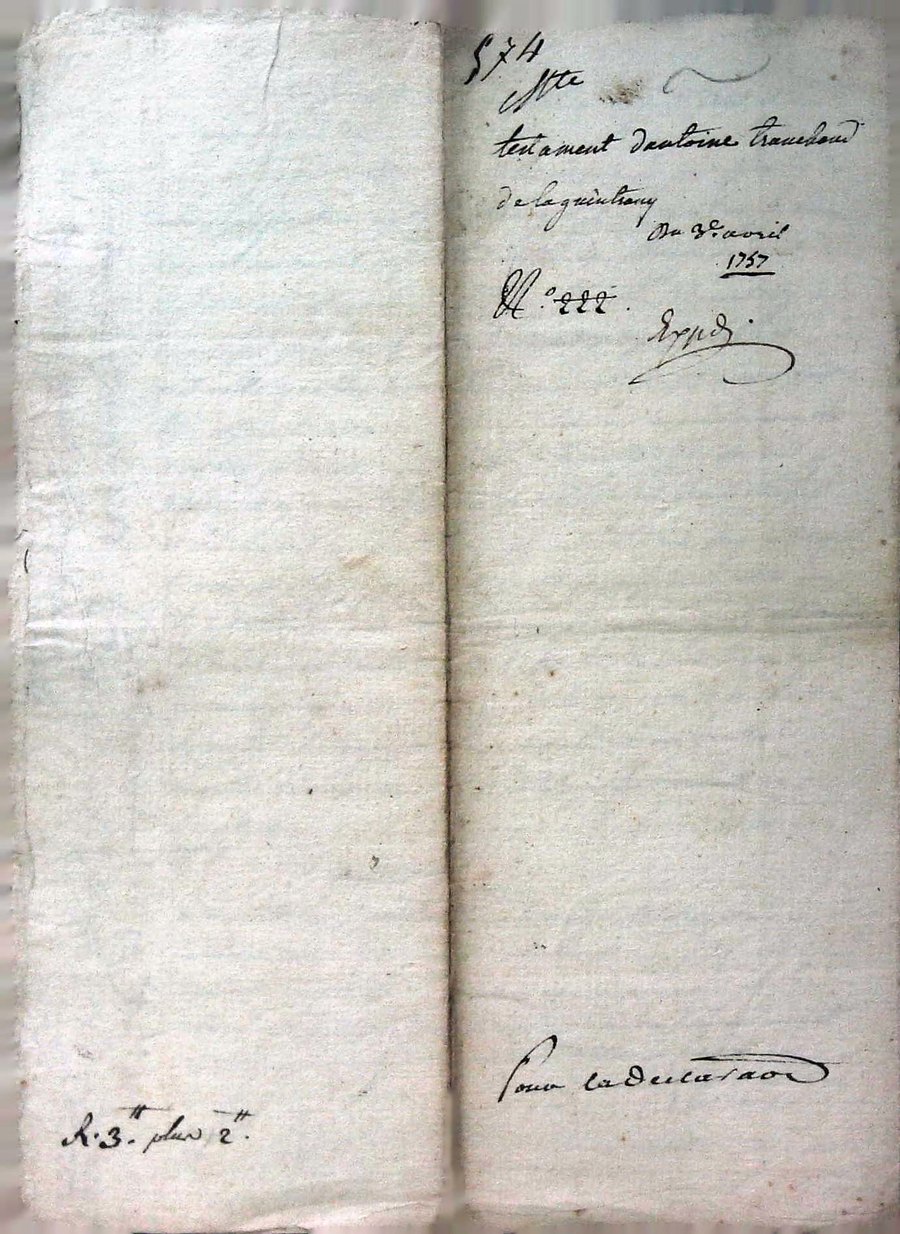 574
testament dantoine tranchand
de laguintrany
Du 3e. avril
1757
N°. 222.
Expdi.
Pour la declaraon
R. 3.tt plus 2tt.